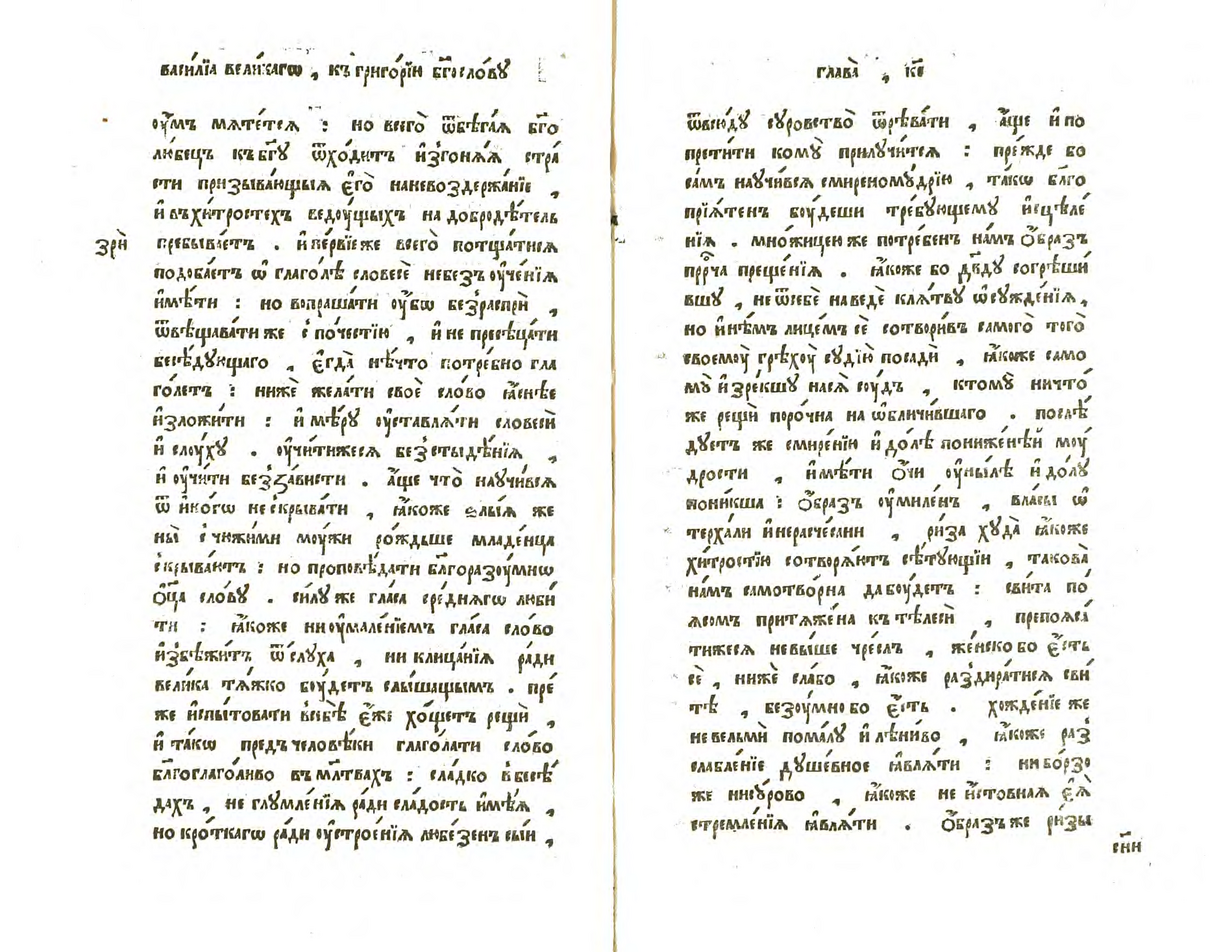 васи́лїа вели́кагѡ , къ григо́рїю бг҃осло́вꙋ
оу҆́мъ мѧте́тсѧ : но всего̀ ѿбѣ́гаѧ бг҃о
лю́бецъ къ бг҃ꙋ ѿхо́дитъ и҆згонѧ́ѧ стра́
сти призыва́ющыѧ є҆го̀ наневоздержа́нїе ,
и҆ въхи́тростехъ ведоу́щыхъ на добродѣ́тель
зрѝ
пребыва́етъ . и҆ пе́рвїе же всего̀ потща́тисѧ
подоба́етъ ѡ҆ глаго́лѣ словесѐ небез̾ оу҆че́нїѧ
и҆мѣ́ти : но вопраша́ти оу҆́бѡ без̾ра́спри ,
ѿвѣщава́ти же с̾ поче́стїю , и҆ не пресѣца́ти
бесѣ́дꙋющаго , є҆гда̀ нѣ́что потре́бно гла
го́летъ : нижѐ жела́ти своѐ сло́во ꙗ҆́снѣе
и҆зложи́ти : и҆ мѣ́рꙋ оу҆ставлѧ́ти словесѝ
и҆ слоу́хꙋ . оу҆чи́тижесѧ без̾стыдѣ́нїѧ ,
и҆ оу҆чи́ти без̾за́висти . а҆́ще что̀ научи́всѧ
ѿ и҆но́гѡ не скрыва́ти , ꙗ҆́коже ѕлы́ѧ же
ны̀ с̾ чюжи́ми моу́жи ро́ждьше младе́нца
скрыва́ютъ : но проповѣ́дати бл҃горазоу́мнѡ
ѻ҆ц҃а̀ сло́вꙋ . си́лꙋ же гла́са сре́днѧгѡ люби́
ти : ꙗ҆́коже ни оу҆мале́нїемъ гла́са сло́во
и҆збѣжи́тъ ѿ слꙋ́ха , ни клица́нїѧ ра́ди
вели́ка тѧ́жко боу́детъ слы́шащымъ . пре́
же и҆спы́товати в̾себѣ̀ є҆́же хо́щетъ рещѝ ,
и҆ та́кѡ предъ человѣ́ки глаго́лати сло́во
бл҃гоглаго́ливо въ мл҃твахъ : сла́дко в̾бесѣ́
дахъ , не глꙋмле́нїѧ ра́ди сла́дость и҆мѣ́ѧ ,
но кро́ткагѡ ра́ди оу҆строе́нїѧ любе́зенъ сы́и ,
глава̀ , к҃е
ѿвсю́дꙋ сꙋ́ровство̀ ѿрѣва́ти , а҆́ще и҆ по
прети́ти комꙋ̀ прилꙋчи́тсѧ : пре́жде бо
са́мъ наꙋчи́всѧ смиреномꙋ́дрїю , та́кѡ бл҃го
прїѧ́тенъ боу́деши тре́бꙋющемꙋ и҆сцѣле́
нїѧ . мно́жицею же потре́бенъ на́мъ ѻ҆́бразъ
прⷪ҇рча преще́нїѧ . ꙗ҆́коже бо дв҃дꙋ согрѣши́
вшꙋ , не ѿ себѐ наведѐ клѧ́твꙋ ѡ҆сꙋжде́нїѧ ,
но и҆нѣ́мъ лице́мъ сѐ сотвори́въ самого̀ того̀
своемоу̀ грѣхоу̀ сꙋдїю̀ посадѝ , ꙗ҆́коже само
мꙋ̀ и҆зре́кшꙋ насѧ̀ соу́дъ , ктомꙋ̀ ничто́
же рещѝ поро́чна на ѡ҆бличи́вшаго . послѣ́
дꙋетъ же смире́нїю и҆ до́лѣ пониже́нѣй моу́
дрости , и҆мѣ́ти ѻ҆́чи оу҆ны́лѣ и҆ до́лꙋ
поникша : ѻ҆́бразъ оу҆миле́нъ , вла́сы ѡ҆
терха́ли и҆ нерасче́сани , ри́за хꙋда̀ ꙗ҆́коже
хи́тростїю сотворѧ́ютъ сѣ́тꙋющїи , такова̀
на́мъ самотво́рна да боу́детъ : сви́та по́
ѧсомъ притѧже́на къ тѣлесѝ , препоѧса́
тижесѧ не вы́ше чре́слъ , же́нско бо є҆́сть
сѐ , нижѐ сла́бо , ꙗ҆́коже раздира́тисѧ сви́
тѣ , безоу́мно бо є҆́сть . хожде́нїе же
не вельмѝ пома́лꙋ и҆ лѣни́во , ꙗ҆́коже раз̾
слабле́нїе дꙋше́вное ꙗ҆влѧ́ти : ни бо́рзо
же ни сꙋ́рово , ꙗ҆́коже не и҆́стовнаѧ є҆ѧ̀
стремле́нїѧ ꙗ҆влѧ́ти . ѻ҆́бразъ же ри́зы